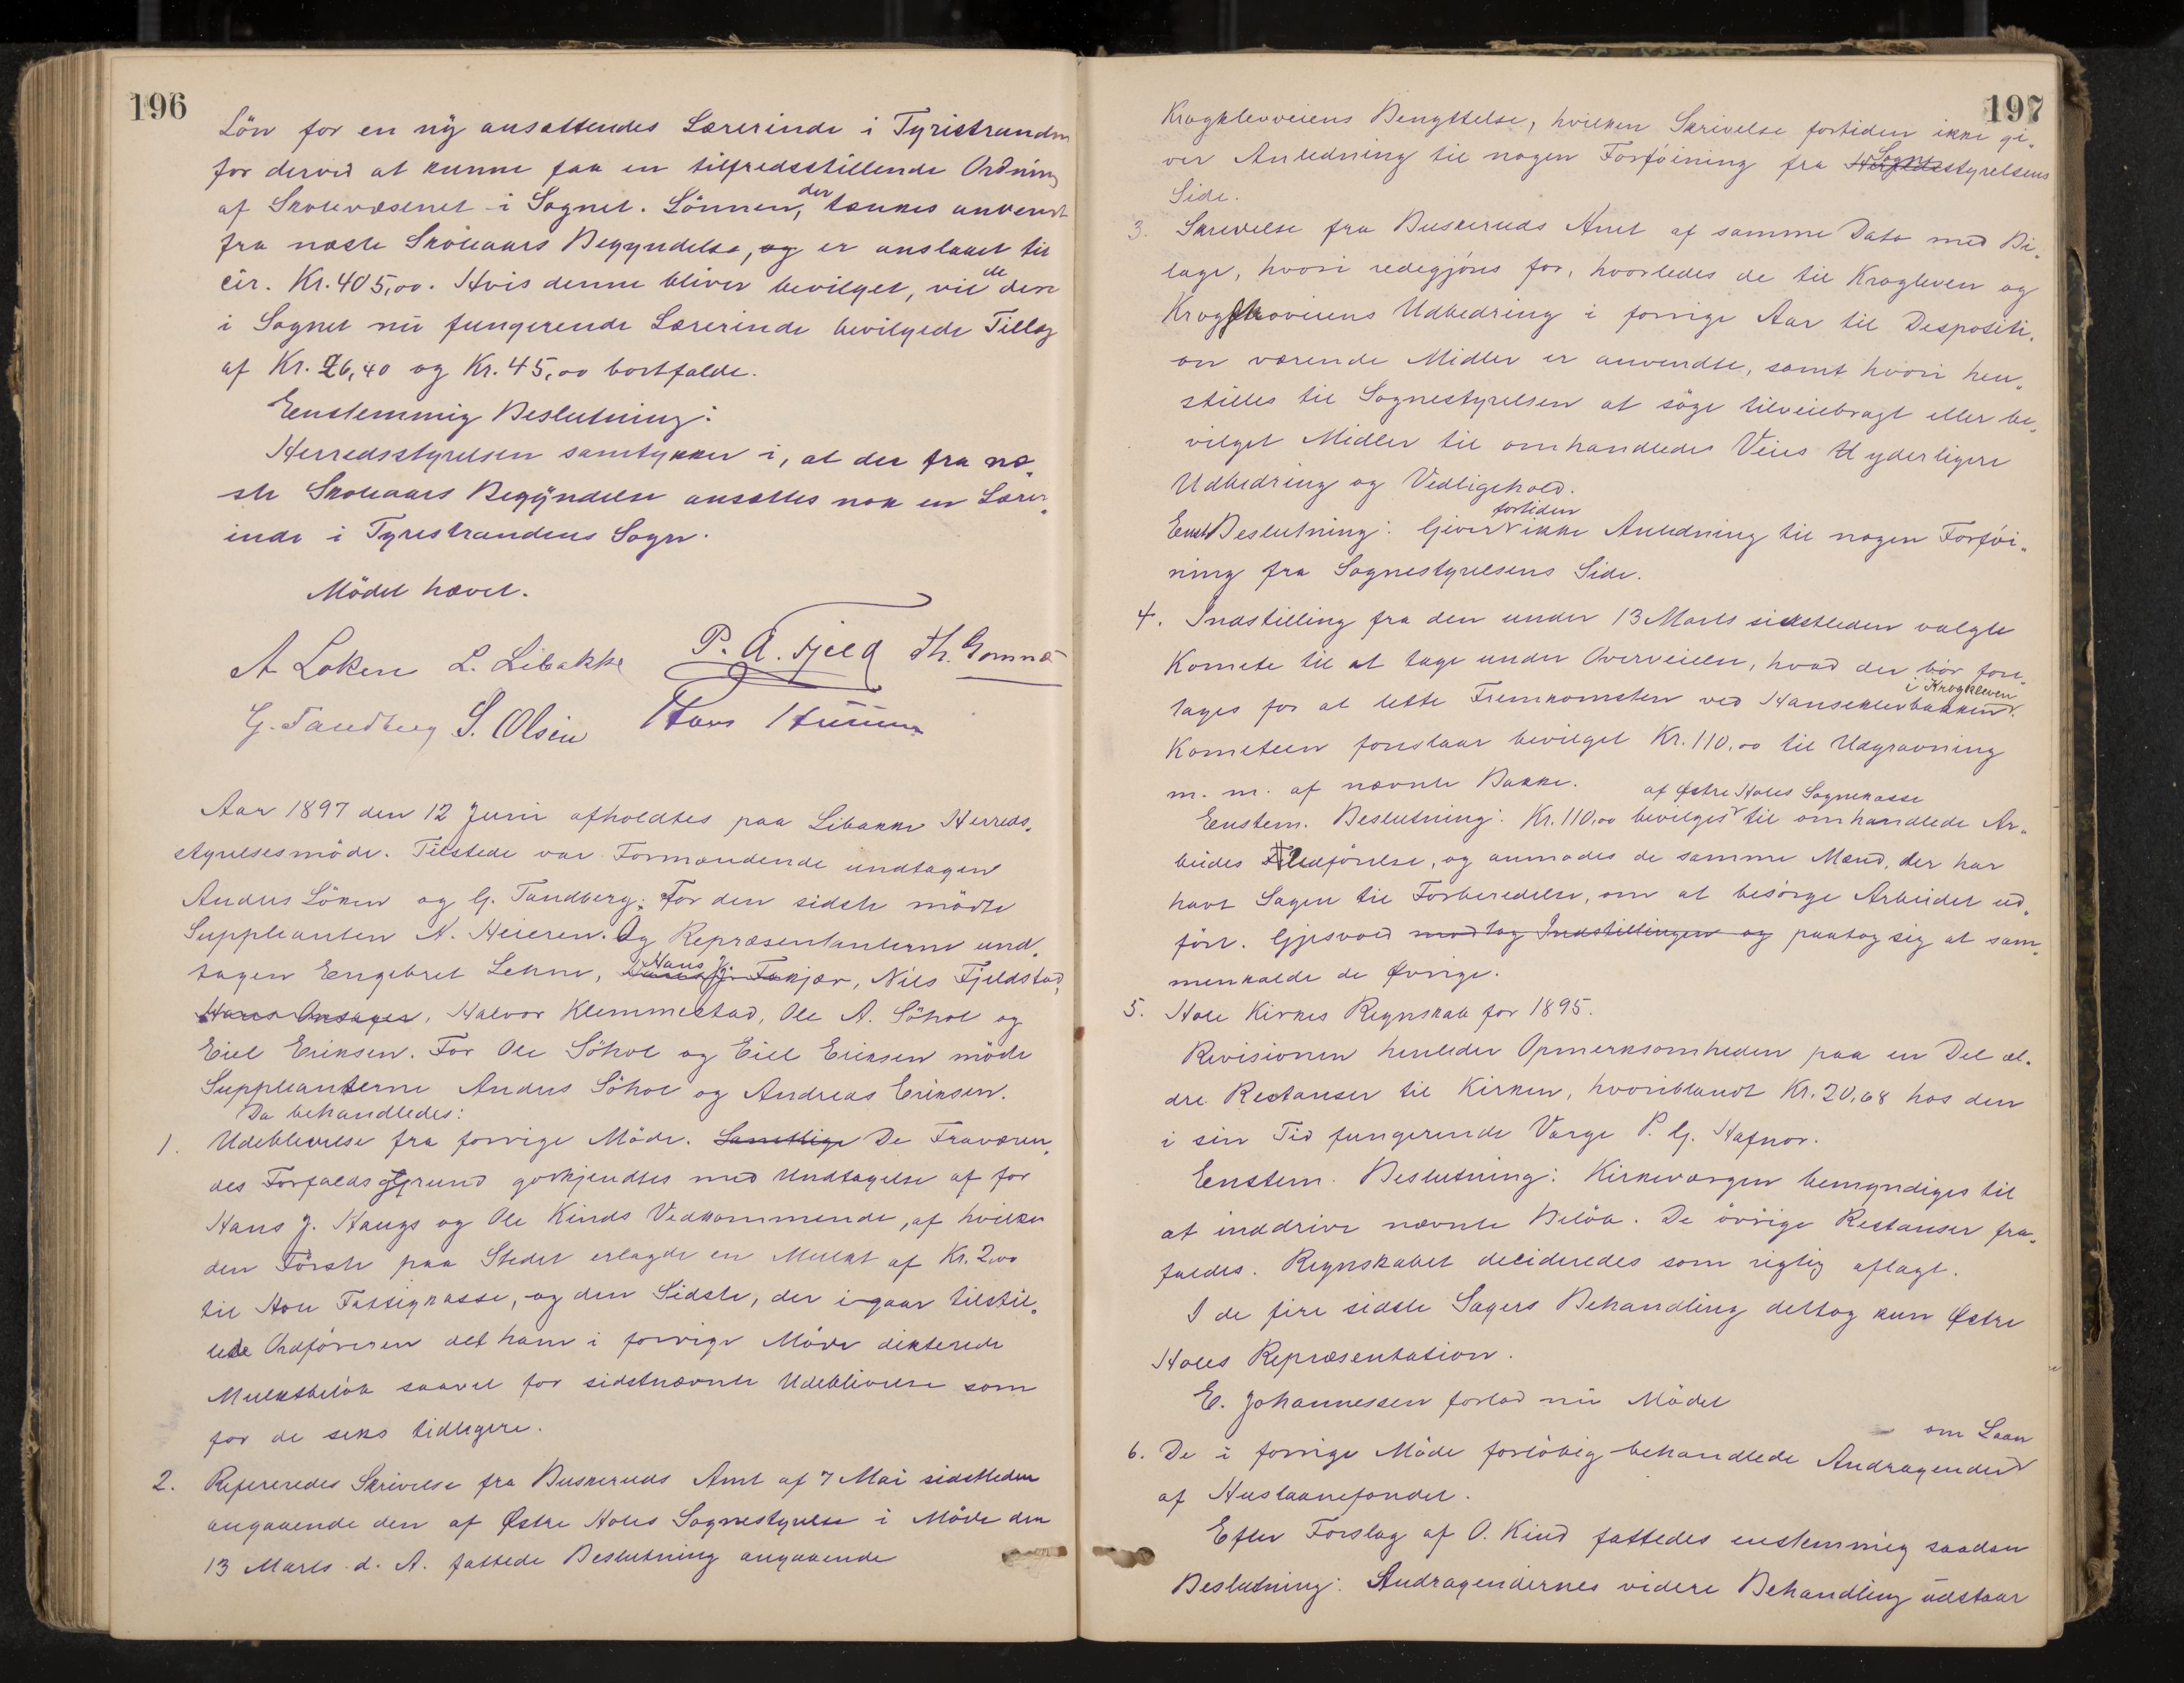 196
Lön for en ny ansættendes Lærerinde i Tyristranden
for derved at kunne faa en tilfredsstillende Ordning
af Skolevæsenet i Sognet. Lönnen, der tænkes anvendt
fra næste Skoleaars Begyndelse, og er anslaaet til
cir. Kr. 405,00. Hvis denne bliver bevilget, vil de den
i Sognet nu fungerende Lærerinde bevilgede Tillæg
af Kr. 26,40 og Kr. 45,00 bortfalde.
Eenstemmig Beslutning:
Herredsstyrelsen samtykker i, at der fra næ„
ste Skoleaars Begyndelse ansættes nok en Lærer„
inde i Tyrestrandens Sogn.
Mödet hævet.
A Løken L. Libakke P. A. Fjeld Th. Gomnæs
G. Tandberg S. Olsen Hans
Aar 1897 den 12 Juni afholdtes paa Libakke Herreds„
styrelsesmöde. Tilstede var Formændende undtagen
Anders Löken og G. Tandberg; For den sidste mödte
Suppleanten N. Heieren. Og Repræsentanterne und„
tagen Eengebret Lehne, Hans J. Fekjær, Nils Fjeldstad,
Hans Onsager, Halvor Klemmetstad, Ole A. Söhol og
Eiel Eriksen. For Ole Söhol og Eiel Eriksen mödte
Suppleanterne Anders Söhol og Andreas Eriksen.
Da behandledes:
1. Udeblivelse fra forrige Möde. Samtlige De Fraværen„
des Forfaldsgrund godkjendtes med Undtagelse af for
Hans J. Haugs og Ole Kinds Vedkommende, af hvilke
den Förste paa Stedet erlagde en Mulkt af Kr. 2,00
til Hole Fattigkasse, og den Sidste, der igaar tilstil„
lede Ordföreren det ham i forrige Möde dikterede
Mulktbelöb saavel for sidstnævnte Udeblivelse som
for de seks tidligere.
2. Refereredes Skrivelse fra Buskeruds Amt af 7 Mai sidstleden
angaaende den af Østre Holes Sognestyrelse i Möde den
13 Marts d. A. fattede Beslutning angaaende
197
Kragklevveiens Benyttelse, hvilken Skrivelse fortiden ikke gi„
ver Anledning til nogen Forföining fra Herreds Sognestyrelsens
Side.
3. Skrivelse fra Buskeruds Amt af samme Dato med Bi„
lage, hvori redegjöres for, hvorledes de til Krogleven og
Krogskoveiens Udbedring i forrige Aar til Despositi„
on værende Midler er anvendte, samt hvori hen„
stilles til Sognestyrelsen at söge tilveiebragt eller be„
vilget Midler til omhandledes Veies U yderligere
Udbedring og Vedligehold.
Eenst Beslutning: Giver fortiden ikke Anledning til nogen Forföi„
ning fra Sognestyrelsens Side.
4. Indstilling fra den under 13 Marts sidstleden valgte
Komite til at tage under Overveielse, hvad der bör fore„
tages for at lette Fremkomsten ved Hanseklevbakken i Krogkleven.
Komiteen foreslaar bevilget Kr. 110,00 til Udgravning
m. m. af nævnte Bakke.
Eenstem. Beslutning: Kr. 110,00 bevilges af Østre Holes Sognekasse til omhandlede Ar„
beides Udförelse, og anmodes de samme Mænd, der har
havt Sagen til Forberedelse, om at besörge Arbeidet ud„
fört. Gjesvold modtog Indstillingen og paatog sig at sam„
menkalde de Øvrige.
5. Hole Kirkes Regnskab for 1895.
Revisionen henleder Opmerksomheden paa en Del æl„
dre Restanser til Kirken, hvoriblandt Kr. 20,68 hos den
i sin Tid fungerende Værge P. G. Hafnor.
Eenstem. Beslutning: Kirkeværgen bemyndiges til
at inddrive nævnte Belöb. De övrige Restanser fra„
faldes. Regnskabet decideredes som rigtig aflagt.
I de fire sidste Sagers Behandling deltog kun Østre
Holes Repræsentation.
E. Johannessen forlod nu Mödet
6. De i forrige Möde forlöbig behandlede Andragender om Laan
af Huslaanefondet.
Efter Forslag af O. Kind fattedes enstemmig saadan
Beslutning: Andragendernes videre Behandling udstaar